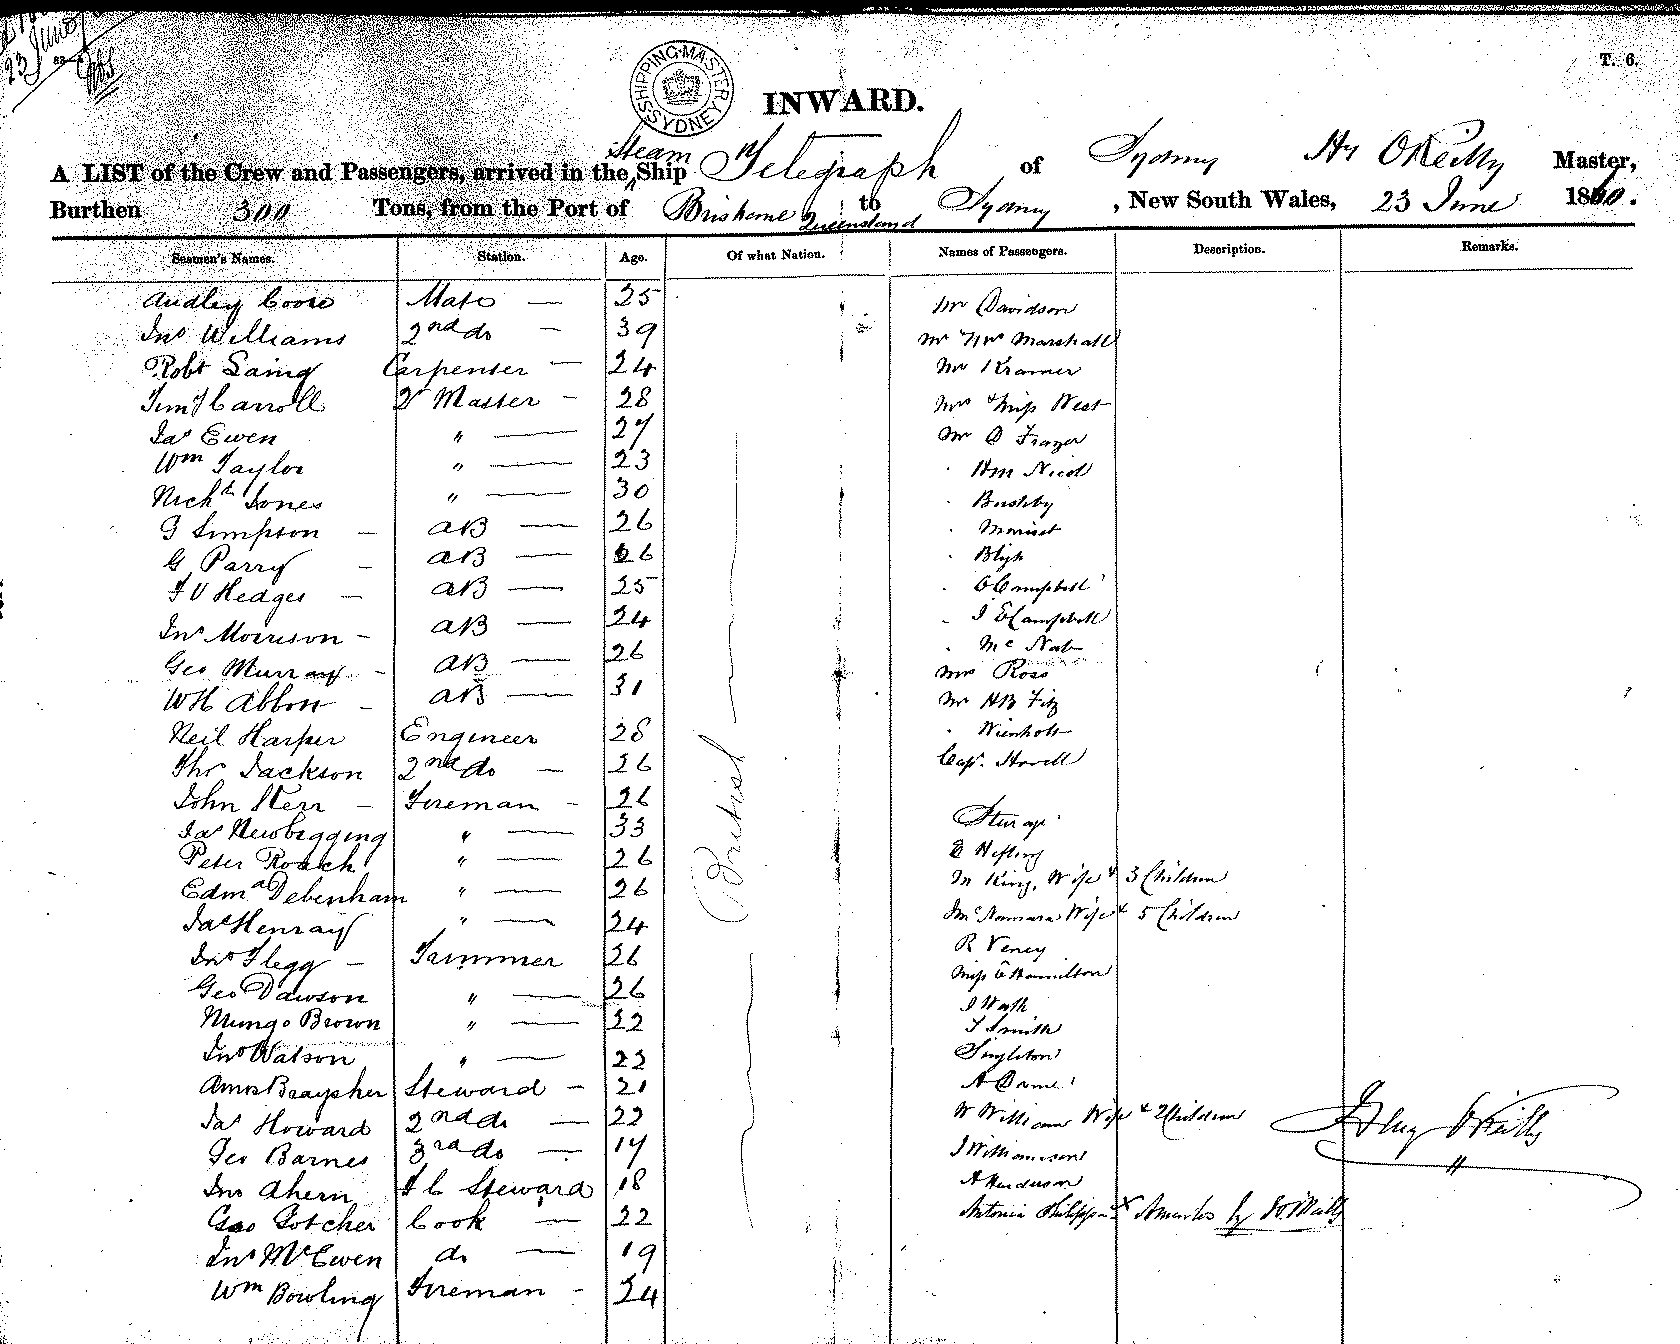 23 June
T. 6.
SHIPPING MASTER SYDNEY
INWARD.
A LIST of the Crew and Passengers, arrived in the Steam Ship Telegraph of Sydney Hy O'Reilly Master,
Burthen 300 Tons, from the Port of Brisbane Queensland to Sydney, New South Wales, 23 June 1860.
Seamen's Names. Station. Age. Of what Nation. Names of Passengers. Description. Remarks.
Audley Coote Mate — 25 Mr Davidson
Jno Williams 2nd do — 39 Mr & Mrs Marshall
Robt Laing Carpenter — 24 Mr Kramer
Timy Carroll Qr Master — 28 Mrs & Miss West
Jas Ewen " — 27 Mr D Frazer
Wm Taylor " — 23 " Wm Nicol
Nichs Jones " — 30 " Bushby
G Simpson — AB — 26 " Morisset
G Parry — AB — 26 " Bligh
J V Hedges — AB — 25 " C Campbell
Jno Morrison — AB — 24 " J E Campbell
Geo Murray — AB — 26 " Mc Nab
WH Abbott — AB — 31 Mrs Ross
Neil Harper Engineer 28 Mr HB Fitz
Thos Jackson 2nd do — 26 " Wienholt
John Kerr — Fireman — 26 Capt. Hovell
Jas Newbigging " — 33
Peter Roach " — 26 E Hefling
Edmd Debenham " — 26 M King, Wife & 3 Children
Jas Henray " — 24 McNamara Wife & 5 Children
Jno Flegg — Trimmer 26 R Veney
Geo Dawson " — 26 Miss C Hamilton
Mungo Brown " — 22 J Walsh
Jno Watson " — 22 T Smith
Amos Braysher Steward — 21 Singleton
Jas Howard 2nd do — 22 W Williams Wife & 2 Children
Geo Barnes 3rd do — 17 J Williamson
Jno Ahern F C Steward 18 A Henderson
Geo Gotcher Cook — 22 Antonia Philippa
Jno McEwen do — 19
Wm Bowling Fireman — 24
British
Henry O'Reilly